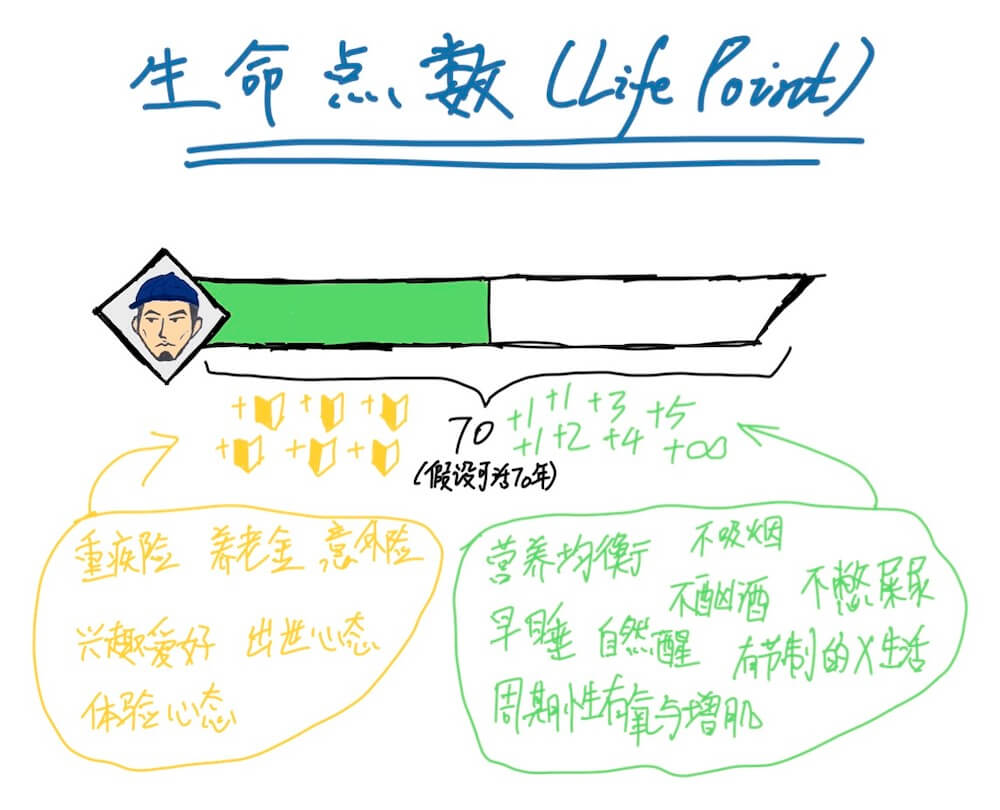 生命点数(Life Point)
70
(假设可活70年)
+1 +1 +3 +5
+1 +2 +4 +∞
重疾险 养老金 意外险
兴趣爱好 出世心态
体验心态
营养均衡 不吸烟
不酗酒 不憋屎尿
早睡 自然醒 有节制的X生活
周期性有氧与增肌